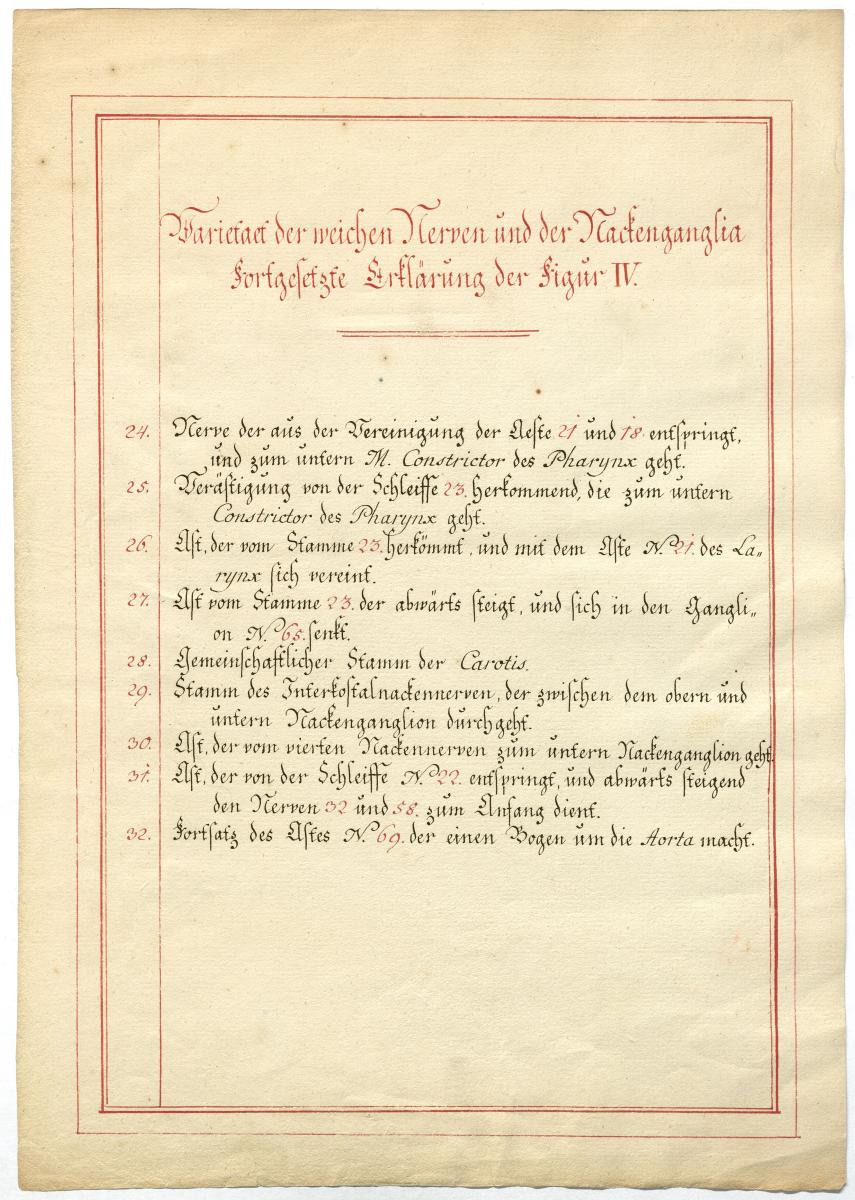 Varietaet der weichen Nerven und der Nackenganglia
Fortgesetzte Erklärung der Figur IV.
24. Nerve der aus der Vereinigung der Aeste 21 und 18. entspringt,
und zum untern M. Constrictor des Pharynx geht.
25. Verästigung von der Schleiffe 23. herkommend, die zum untern
Constrictor des Pharynx geht.
26. Ast, der vom Stamme 23. herkömmt, und mit dem Aste N.º 21. des La„
rynx sich vereint.
27. Ast vom Stamme 23. der abwärts steigt, und sich in den Gangli„
on N.º 65. senkt.
28. Gemeinschaftlicher Stamm der Carotis.
29. Stamm des Interkostalnackennerven, der zwischen dem obern und
untern Nackenganglion durchgeht.
30. Ast, der vom vierten Nackennerven zum untern Nackenganglion geht.
31. Ast, der von der Schleiffe N.º 22. entspringt, und abwärts steigend
den Nerven 32 und 58. zum Anfang dient.
32. Fortsatz des Astes N.º 69. der einen Bogen um die Aorta macht.